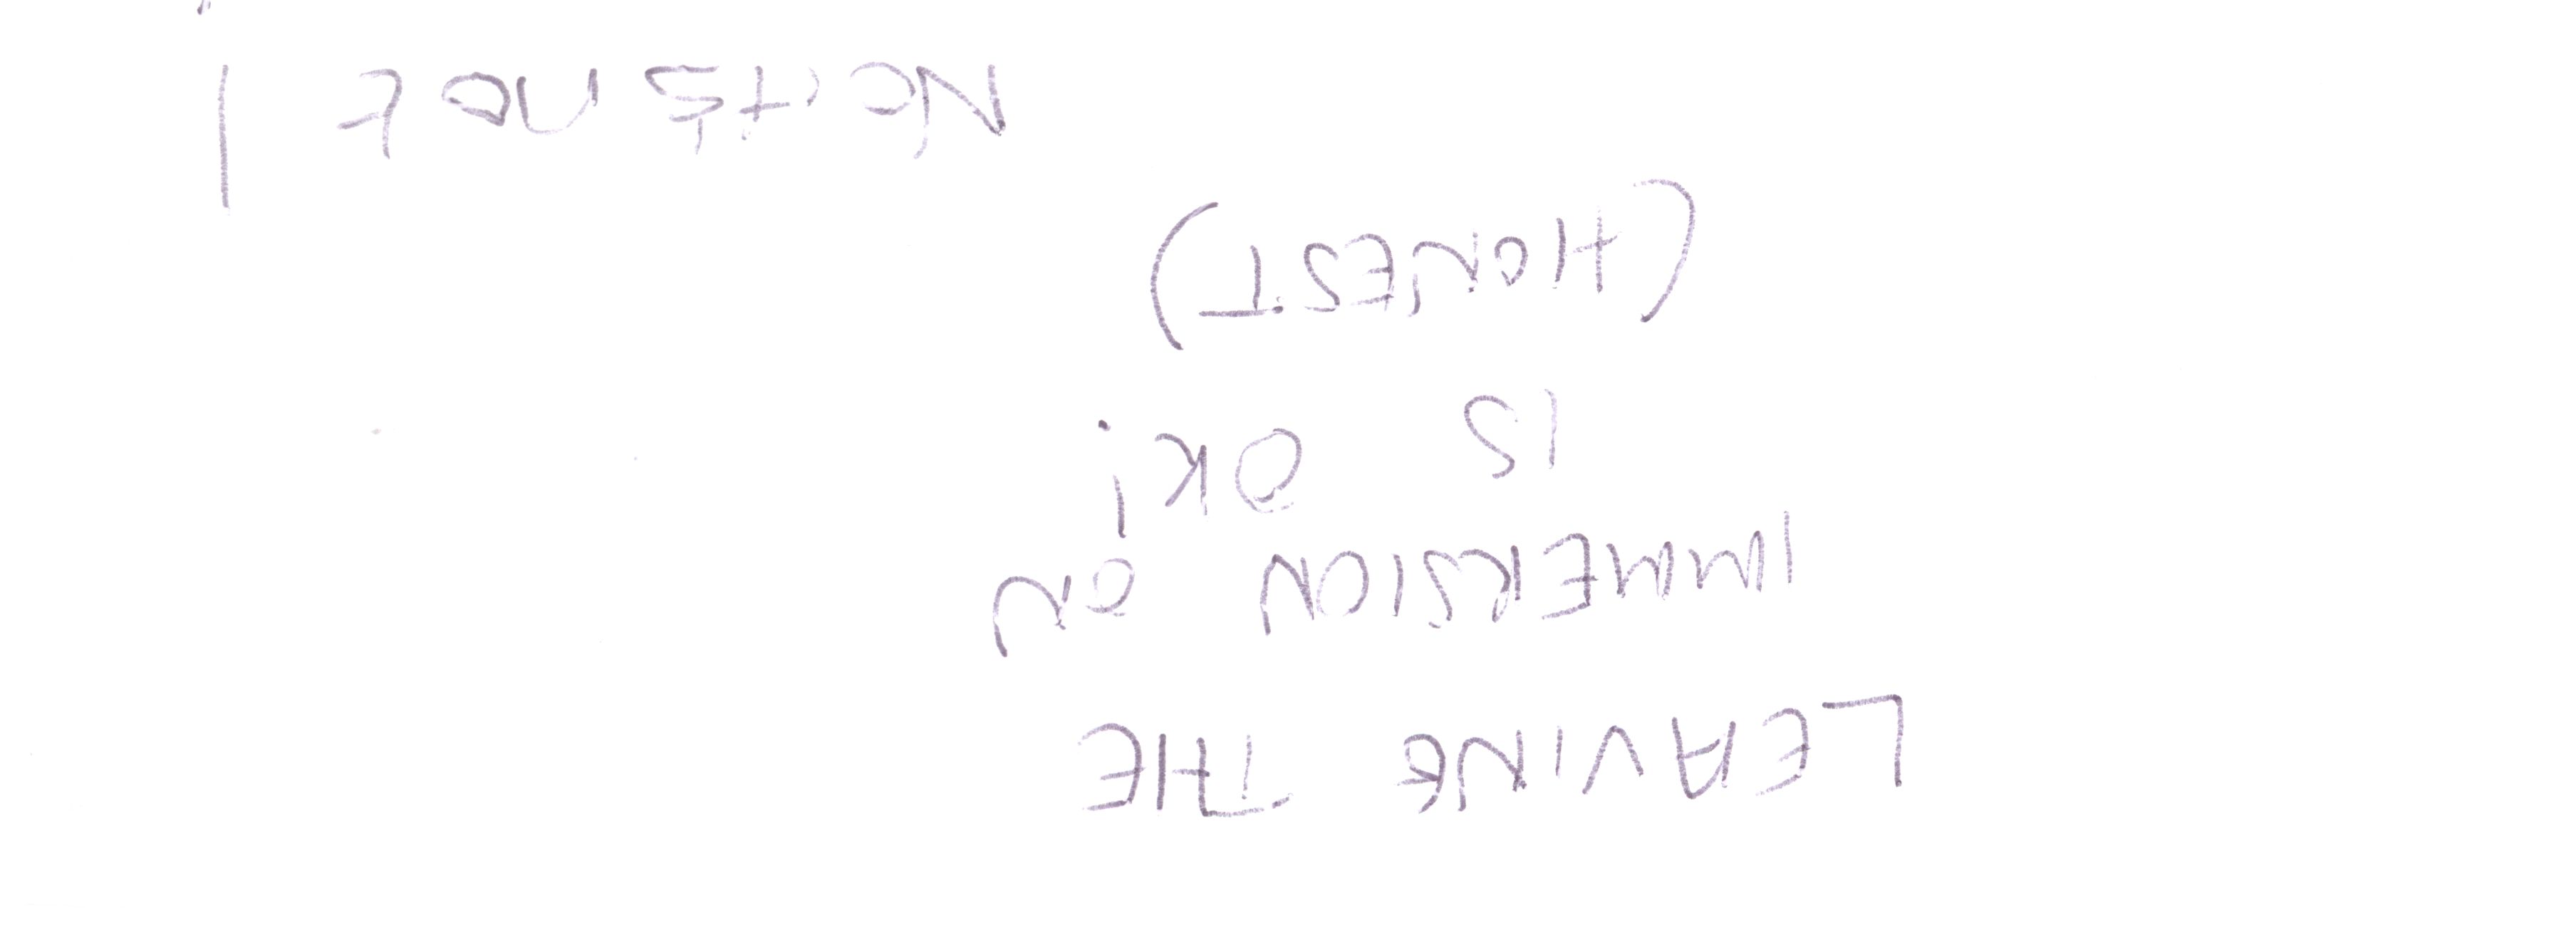 LEAVING THE
IMMERSION ON
IS OK!
(HONEST)
NO it's not!